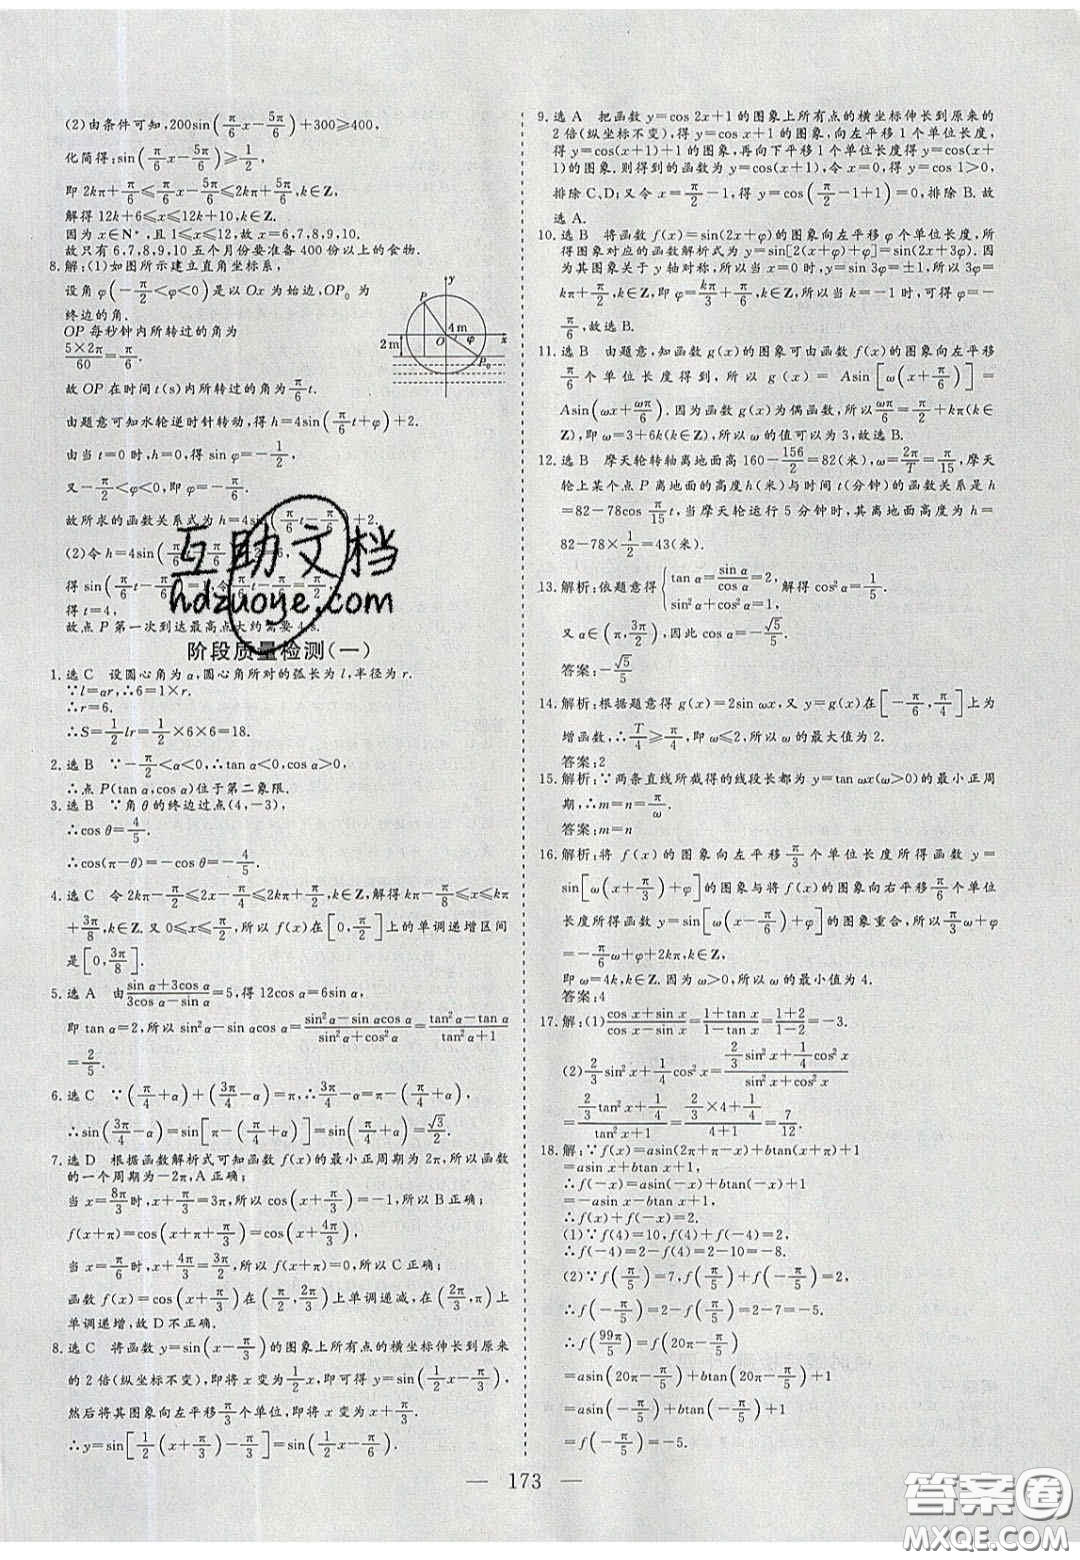 (2)由条件可知,200sin(π/6 x−5π/6)+300⩾400,
化简得:sin(π/6 x−5π/6)⩾1/2,
即 2kπ+π/6⩽π/6 x−5π/6⩽2kπ+5π/6,k∈Z,
解得 12k+6⩽x⩽12k+10,k∈Z.
因为 x∈N*,且 1⩽x⩽12,故 x=6,7,8,9,10.
故只有 6,7,8,9,10 五个月份要准备 400 份以上的食物.
8.解:(1)如图所示建立直角坐标系,
设角 φ(−π/2<φ<0)是以 Ox 为始边,OP₀ 为
终边的角.
OP 每秒钟内所转过的角为
5×2π/60=π/6.
y
P
4 m
2 m
O
φ
x
P₀
故 OP 在时间 t(s)内所转过的角为π/6 t.
由题意可知水轮逆时针转动,得 h=4sin(π/6 t+φ)+2.
由当 t=0 时,h=0,得 sin φ=−1/2,
又−π/2<φ<0,即 φ=−π/6.
故所求的函数关系式为 h=4sin(π/6 t−π/6)+2.
(2)令 h=4sin(π/6 t−π/6)+2=6,
得 sin(π/6 t−π/6)=1,令π/6 t−π/6=π/2,
得 t=4,
故点 P 第一次到达最高点大约需要 4 s.
互助文档
hdzuoye.com
阶段质量检测(一)
1.选 C 设圆心角为 α,圆心角所对的弧长为 l,半径为 r.
∵l=αr,∴6=1×r.
∴r=6.
∴S=1/2 lr=1/2×6×6=18.
2.选 B ∵−π/2<α<0,∴tan α<0,cos α>0,
∴点 P(tan α,cos α)位于第二象限.
3.选 B ∵角 θ 的终边过点(4,−3),
∴cos θ=4/5.
∴cos(π−θ)=−cos θ=−4/5.
4.选 C 令 2kπ−π/2⩽2x−π/4⩽2kπ+π/2,k∈Z,解得 kπ−π/8⩽x⩽kπ
+3π/8,k∈Z.又 0⩽x⩽π/2,所以 f(x)在[0,π/2]上的单调递增区间
是[0,3π/8].
5.选 A 由(sin α+3cos α)/(3cos α−sin α)=5,得 12cos α=6sin α,
即 tan α=2,所以 sin²α−sin αcos α=(sin²α−sin αcos α)/(sin²α+cos²α)=(tan²α−tan α)/(tan²α+1)
=2/5.
6.选 C ∵(π/4+α)+(3π/4−α)=π,∴3π/4−α=π−(π/4+α),
∴sin(3π/4−α)=sin[π−(π/4+α)]=sin(π/4+α)=√3/2.
7.选 D 根据函数解析式可知函数 f(x)的最小正周期为 2π,所以函数
的一个周期为−2π,A 正确;
当 x=8π/3时,x+π/3=3π,所以 cos(x+π/3)=−1,所以 B 正确;
f(x+π)=cos(x+π+π/3)=cos(x+4π/3),
当 x=π/6时,x+4π/3=3π/2,所以 f(x+π)=0,所以 C 正确;
函数 f(x)=cos(x+π/3)在(π/2,2π/3)上单调递减,在(2π/3,π)上
单调递增,故 D 不正确.
8.选 C 将函数 y=sin(x−π/3)的图象上所有点的横坐标伸长到原来
的 2 倍(纵坐标不变),即将 x 变为1/2 x,即可得 y=sin(1/2 x−π/3),
然后将其图象向左平移π/3个单位,即将 x 变为 x+π/3.
∴y=sin[1/2(x+π/3)−π/3]=sin(1/2 x−π/6).
9.选 A 把函数 y=cos 2x+1 的图象上所有点的横坐标伸长到原来的
2 倍(纵坐标不变),得 y=cos x+1 的图象,向左平移 1 个单位长度,
得 y=cos(x+1)+1 的图象,再向下平移 1 个单位长度得 y=cos(x+
1)的图象.则得到的函数为 y=cos(x+1),令 x=0,得 y=cos 1>0,
排除 C,D;又令 x=π/2−1,得 y=cos(π/2−1+1)=0,排除 B.故
选 A.
10.选 B 将函数 f(x)=sin(2x+φ)的图象向左平移 φ 个单位长度,所
得图象对应的函数解析式为 y=sin[2(x+φ)+φ]=sin(2x+3φ).因
为其图象关于 y 轴对称,所以当 x=0 时,y=sin 3φ=±1,所以 3φ=
kπ+π/2,k∈Z,即 φ=kπ/3+π/6,k∈Z,所以当 k=−1 时,可得 φ=−
π/6,故选 B.
11.选 B 由题意,知函数 g(x)的图象可由函数 f(x)的图象向左平移
π/6个单位长度得到,所以 g(x)=Asin[ω(x+π/6)]=
Asin(ωx+ωπ/6).因为函数 g(x)为偶函数,所以ωπ/6=π/2+kπ(k∈
Z),即 ω=3+6k(k∈Z),所以 ω 的值可以为 3,故选 B.
12.选 B 摩天轮转轴离地面高 160−156/2=82(米),ω=2π/T=π/15,摩天
轮上某个点 P 离地面的高度 h(米)与时间 t(分钟)的函数关系是 h
=82−78cos π/15 t,当摩天轮运行 5 分钟时,其离地面高度为 h=
82−78×1/2=43(米).
13.解析:依题意得{tan α=sin α/cos α=2, sin²α+cos²α=1, 解得 cos²α=1/5,
又 α∈(π,3π/2),因此 cos α=−√5/5.
答案:−√5/5
14.解析:根据题意得 g(x)=2sin ωx,又 y=g(x)在[−π/6,π/4]上为
增函数,∴T/4⩾π/4,即 ω⩽2,所以 ω 的最大值为 2.
答案:2
15.解析:∵两条直线所截得的线段长都为 y=tan ωx(ω>0)的最小正周
期,∴m=n=π/ω.
答案:m=n
16.解析:将 f(x)的图象向左平移π/3个单位长度所得函数 y=
sin[ω(x+π/3)+φ]的图象与将 f(x)的图象向右平移π/6个单位
长度所得函数 y=sin[ω(x−π/6)+φ]的图象重合,所以π/3ω+φ=
−π/6ω+φ+2kπ,k∈Z,
即 ω=4k,k∈Z.因为 ω>0,所以 ω 的最小值为 4.
答案:4
17.解:(1)(cos x+sin x)/(cos x−sin x)=(1+tan x)/(1−tan x)=(1+2)/(1−2)=−3.
(2)2/3 sin²x+1/4 cos²x=(2/3 sin²x+1/4 cos²x)/(sin²x+cos²x)
=(2/3 tan²x+1/4)/(tan²x+1)=(2/3×4+1/4)/(4+1)=7/12.
18.解:∵f(x)=asin(2π+π−x)+btan(x+π)+1
=asin x+btan x+1,
∴f(−x)=asin(−x)+btan(−x)+1
=−asin x−btan x+1,
∴f(x)+f(−x)=2.
(1)∵f(4)=10,f(4)+f(−4)=2,
∴f(−4)=2−f(4)=2−10=−8.
(2)∵f(π/5)=7,f(π/5)+f(−π/5)=2,
∴f(−π/5)=2−f(π/5)=2−7=−5.
∴f(99π/5)=f(20π−π/5)
=asin(20π−π/5)+btan(20π−π/5)+1
=asin(−π/5)+btan(−π/5)+1
=f(−π/5)=−5.
— 173 —
答案圈
MXQE.COM